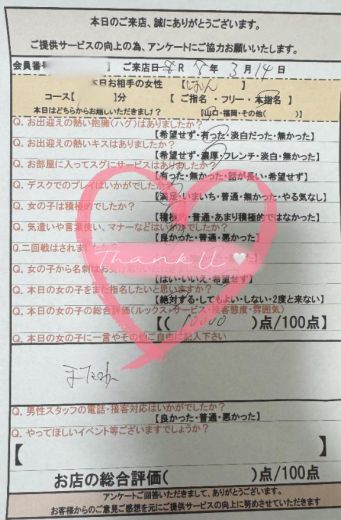 本日のご来店、誠にありがとうございます。
ご提供サービスの向上の為、アンケートにご協力お願いいたします。
会員番号 ご来店日 R 8年 3月 14日
本日お相手の女性
コース【 】分 【ご指名・フリー・本指名】
本日はどちらからお越しいただきましたか? 【山口・福岡・その他( )】
Q. お出迎えの熱い抱擁(ハグ)はありましたか?
【希望せず・有った・淡白だった・無かった】
Q. お出迎えの熱いキスはありましたか?
【希望せず・濃厚・フレンチ・淡白・無かった】
Q. お部屋に入ってスグにサービスはありましたか?
【有った・無かった・話が長い・希望せず】
Q. デスクでのプレイはいかがでしたか?
【満足・いまいち・普通・無かった・やる気なし】
Q. 女の子は積極的でしたか?
【積極・普通・あまり積極的ではなかった】
Q. 気遣いや言葉使い、マナーなどはいかがでしたか?
【良かった・普通・悪かった】
Q. 二回戦はされましたか
Thank U
Q. 女の子から名刺はお受け取り
【はい・いいえ・希望せず】
Q. 本日の女の子をまた指名したいと思いますか?
【絶対する・してもよい・しない・2度と来ない】
Q. 本日の女の子の総合評価(ルックス・サービス・接客態度・雰囲気)
【( 10000 )点/100点】
Q. 本日の女の子に一言やその他ご自由に記入下さい
またねー
Q. 男性スタッフの電話・接客対応はいかがでしたか?
【良かった・普通・悪かった】
Q. やってほしいイベント等ございますでしょうか?
【 】
お店の総合評価( )点/100点
アンケートご回答いただきまして、ありがとうございます。
お客様からのご意見ご感想を元にご提供サービスの向上に努めさせていただきます